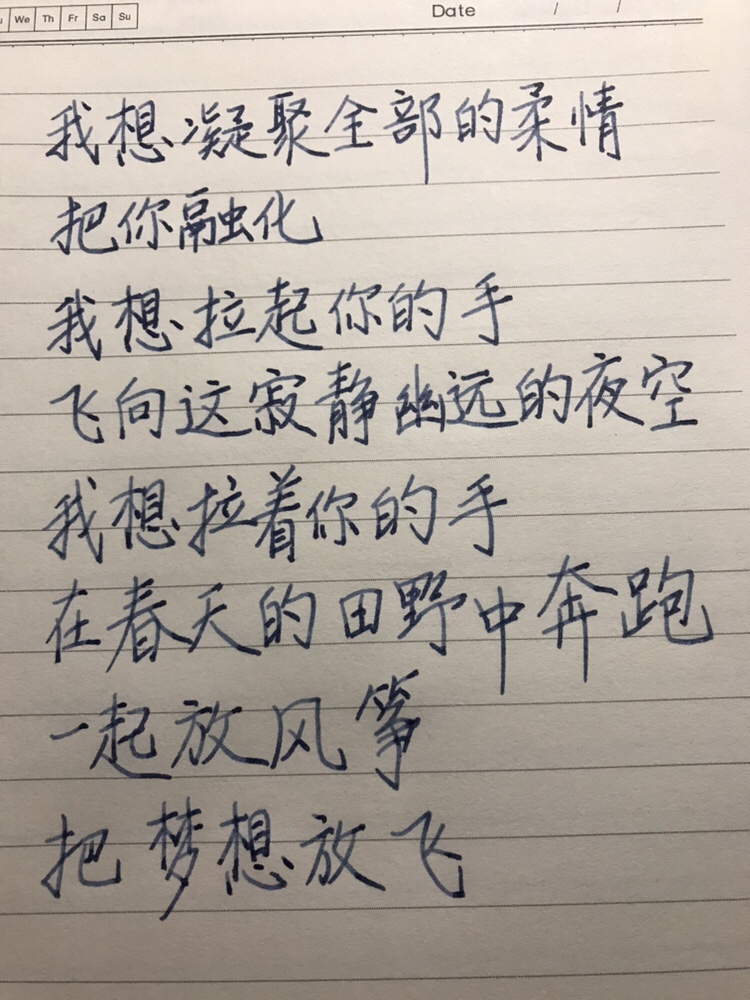 We Th Fr Sa Su Date / /
我想凝聚全部的柔情
把你融化
我想拉起你的手
飞向这寂静幽远的夜空
我想拉着你的手
在春天的田野中奔跑
一起放风筝
把梦想放飞